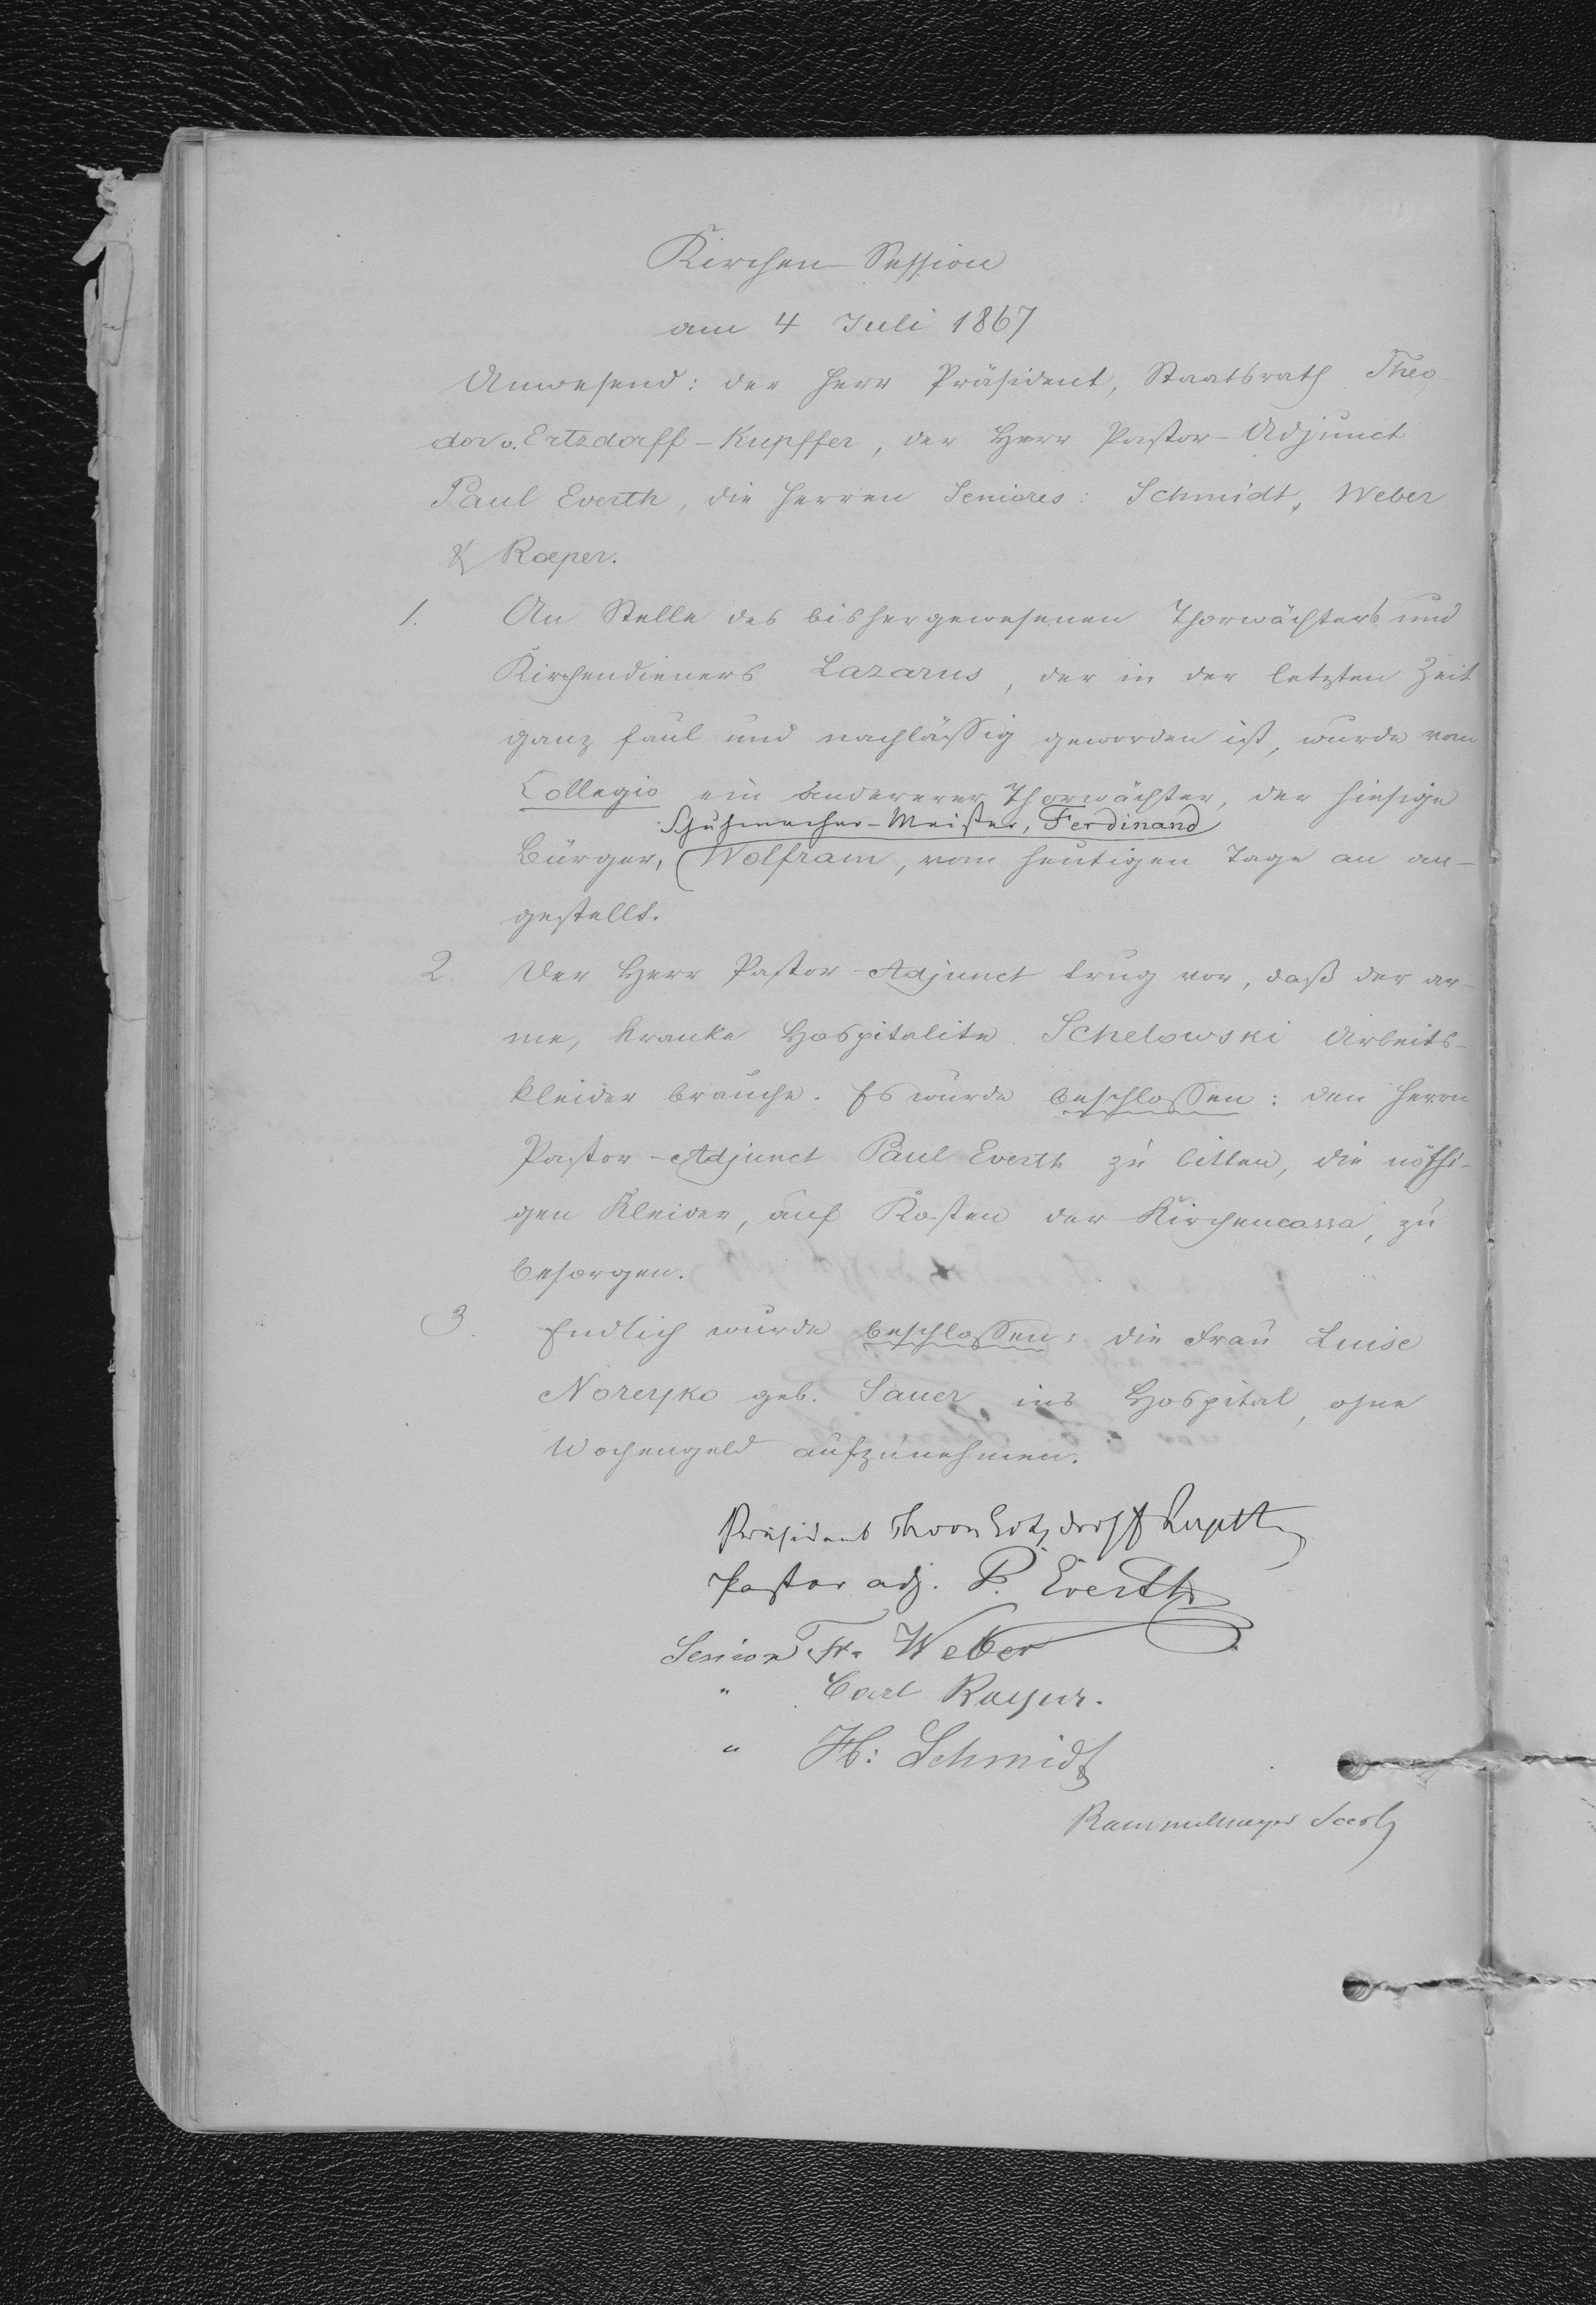 Kirchen-Session
am 4 Juli 1867
Anwesend: der Herr Präsident, Staatsrath Theo-
dor v. Ertzdorff-Kupffer, der Herr Pastor-Adjunct
Paul Everth, die Herren Seniores: Schmidt, Weber
& Roeper.
1. An Stelle des bishergewesenen Thorwächters und
Kirchendieners Lazarus, der in der letzten Zeit
ganz faul und nachläßig geworden ist, wurde vom
Collegio ein andererer Thorwächter, der hiesige
Schuhmacher-Meister, Ferdinand
Bürger, Wolfram, vom heutigen Tage an an-
gestellt.
2. Der Herr Pastor-Adjunct trug vor, daß der ar-
me, kranke Hospitalite Schelowski Arbeits-
kleider brauche. Es wurde beschloßen: den Herrn
Pastor-Adjunct Paul Everth zu bitten, die nöthi-
gen Kleider, auf Kosten der Kirchencassa, zu
besorgen.
3. Endlich wurde beschloßen: die Frau Luise
Noreyko geb. Sauer ins Hospital, ohne
Wochengeld aufzunehmen.
Präsident Th von Ertzdorff Kupffer
Pastor adj. P. Everth
Senior Fr. Weber
" Carl Roeper.
" H: Schmidt
Rammelmeyer Secr